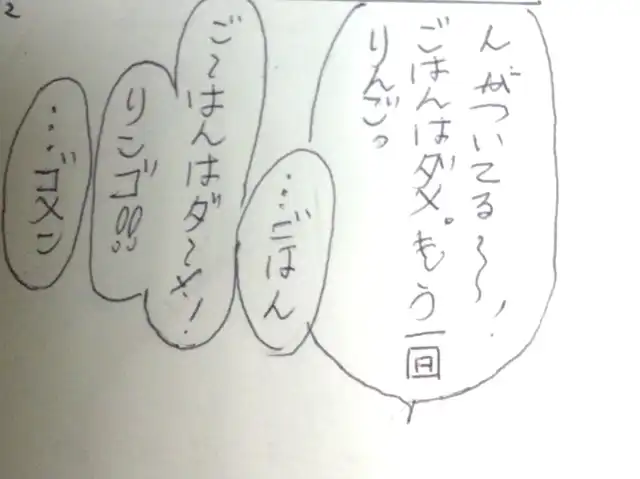 んがついてる〜〜!
ごはんはダメ。もう一回
りんごっ
…ごはん
ご〜はんはダ〜メッ!
リンゴ!!
…ゴメン
2